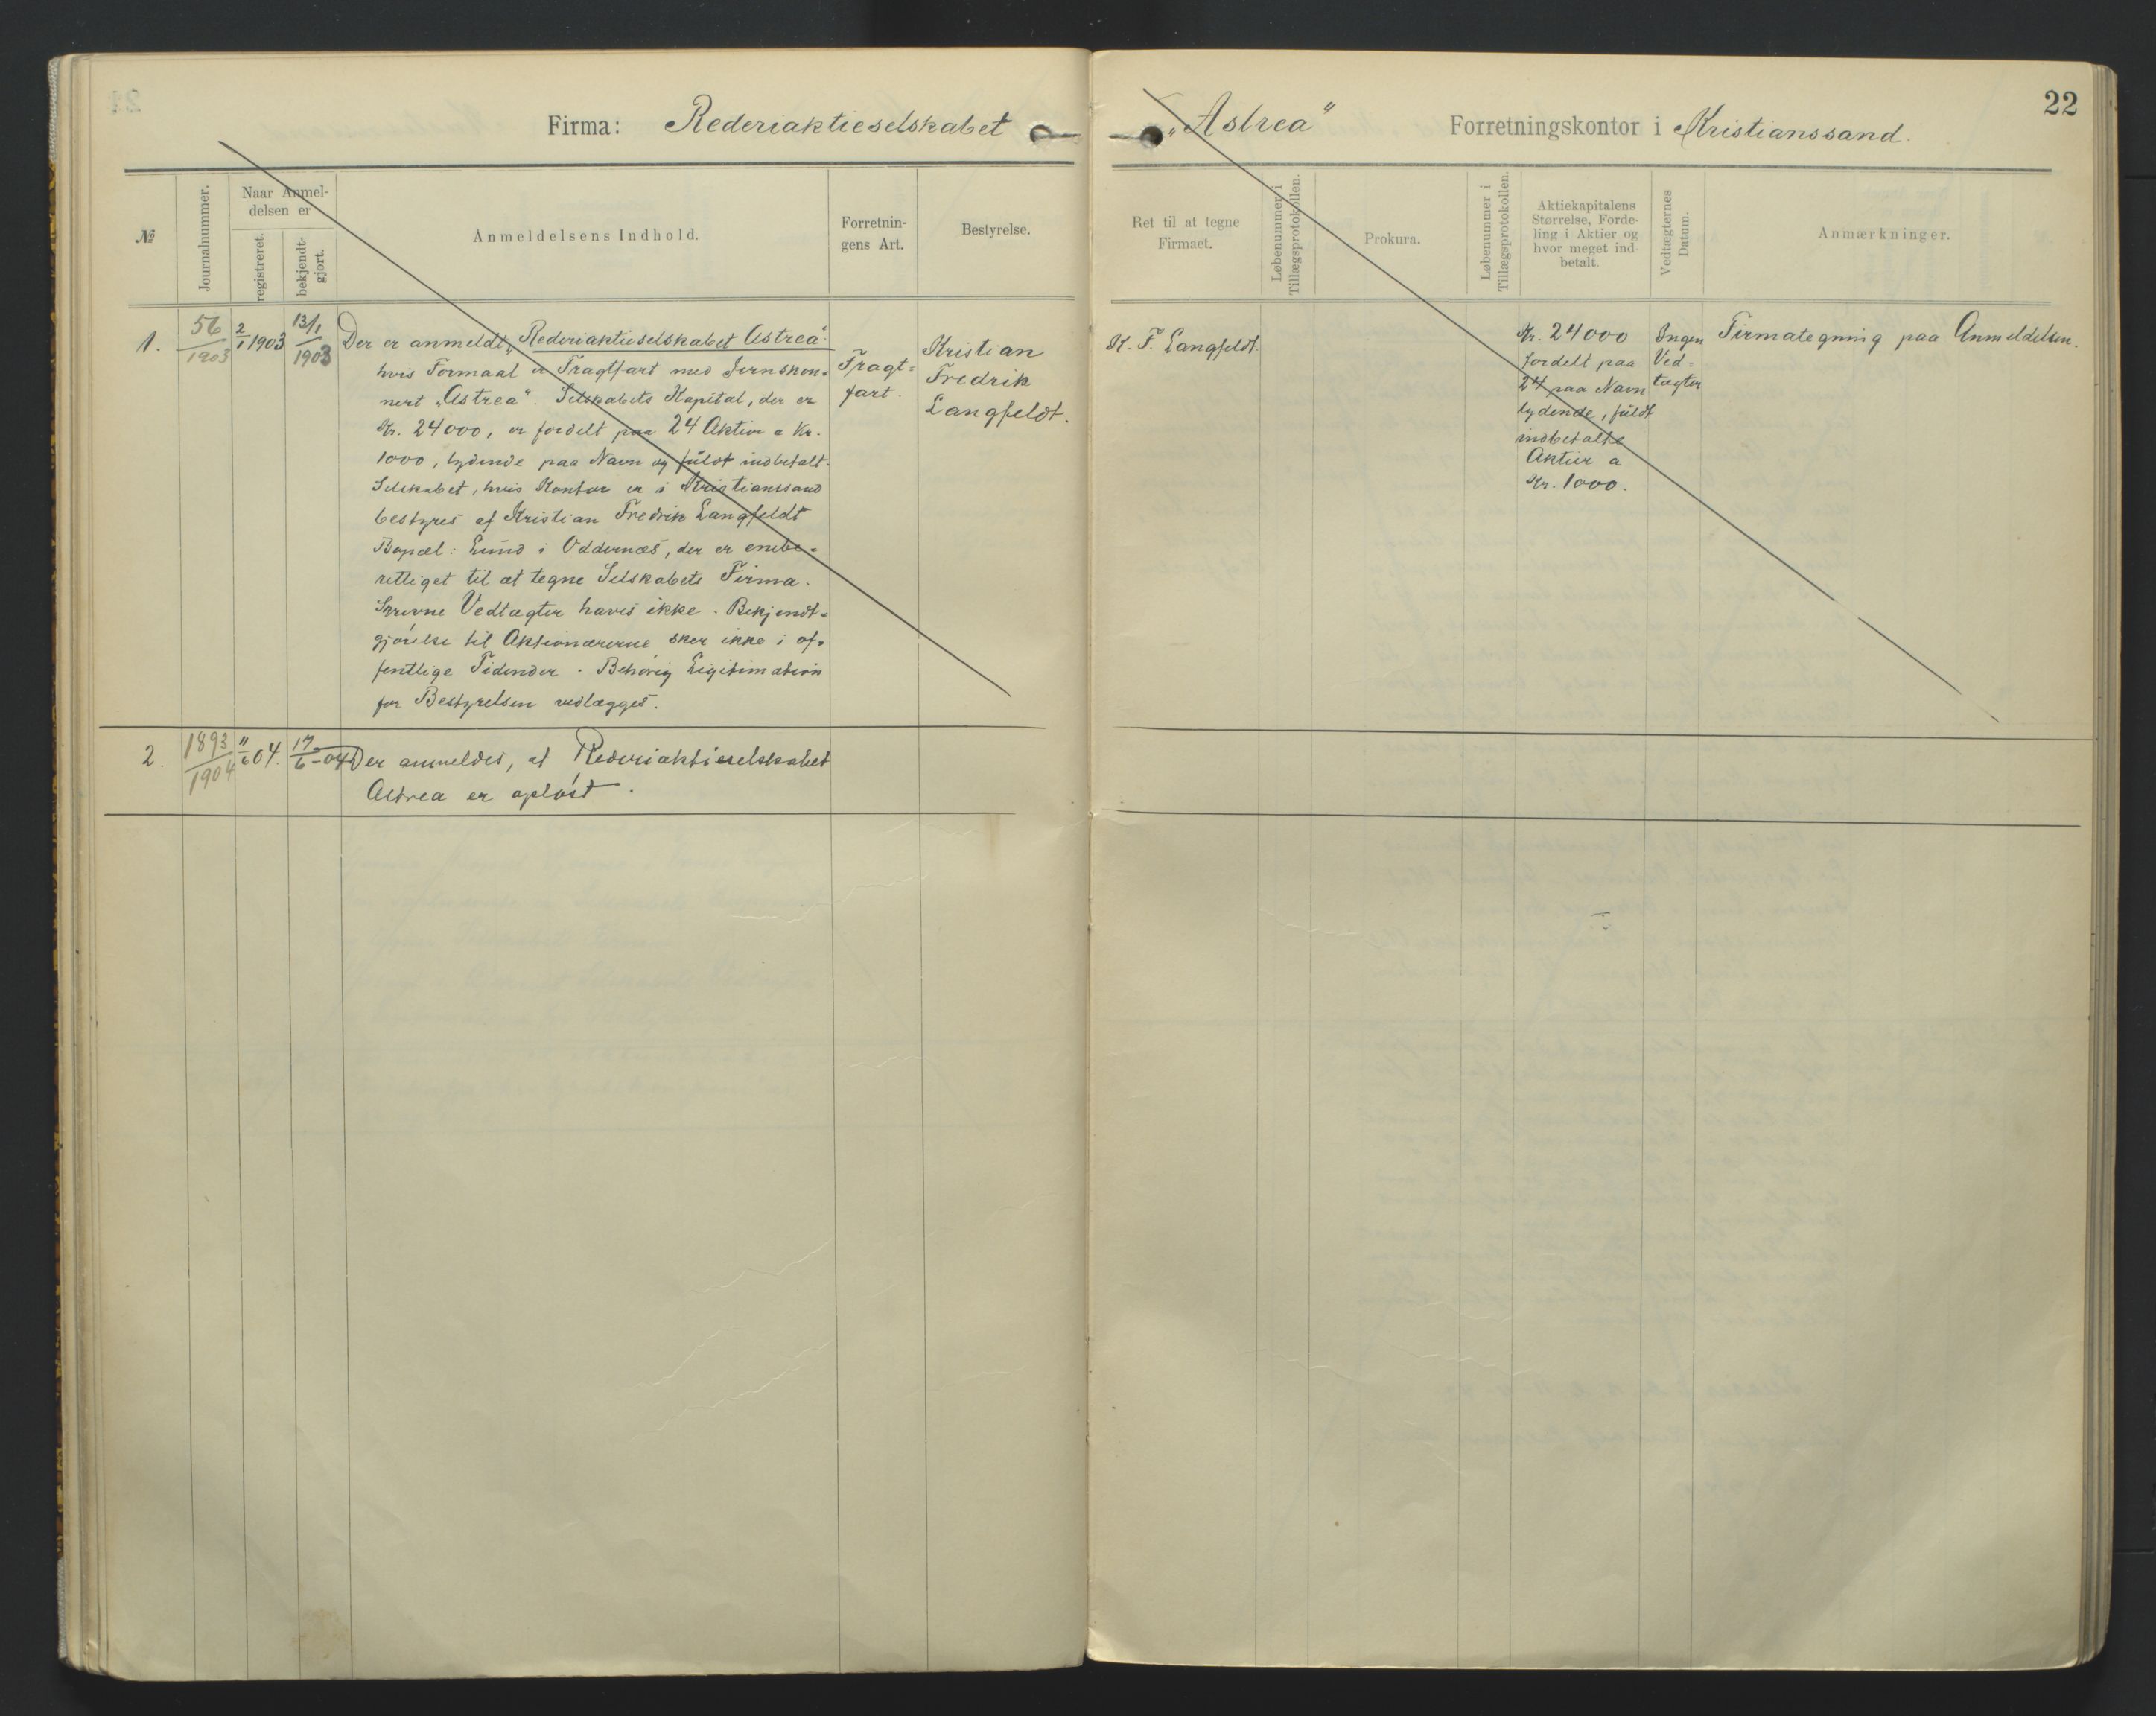 22
Firma: Rederiaktieselskabet „Astrea" Forretningskontor i Kristianssand.
№
Journalnummer.
Naar Anmel-
delsen er
registreret.
bekjendt-
gjort.
Anmeldelsens Indhold.
Forretnin-
gens Art.
Bestyrelse.
Ret til at tegne
Firmaet.
Løbenummer i
Tillægsprotokollen.
Prokura.
Løbenummer i
Tillægsprotokollen.
Aktiekapitalens
Størrelse, Forde-
ling i Aktier og
hvor meget ind-
betalt.
Vedtægternes
Datum.
Anmærkninger.
1.
56/1903
2/1 1903
13/1 1903
Der er anmeldt „Rederiaktieselskabet Astrea"
hvis Formaal er Fragtfart med Jernskon-
nert „Astrea". Selskabets Kapital, der er
Kr. 24000, er fordelt paa 24 Aktier a Kr.
1000, lydende paa Navn og fuldt indbetalt.
Selskabet, hvis Kontor er i Kristianssand
bestyres af Kristian Fredrik Langfeldt
Bopæl: Lund i Oddernæs, der er enebe-
rettiget til at tegne Selskabets Firma.
Skrevne Vedtægter haves ikke. Bekjendt-
gjørelse til Aktionærerne sker ikke i of-
fentlige Tidender. Behørig Legitimation
for Bestyrelsen vedlægges.
Fragt-
fart.
Kristian
Fredrik
Langfeldt.
K. F. Langfeldt.
Kr. 24000
fordelt paa
24 paa Navn
lydende, fuldt
indbetalte
Aktier a
Kr. 1000.
Ingen
Ved-
tægter
Firmategning paa Anmeldelsen.
2.
1893/1904
11/6 04.
17/6 - 04
Der anmeldes, at Rederiaktieselskabet
Astrea er opløst.